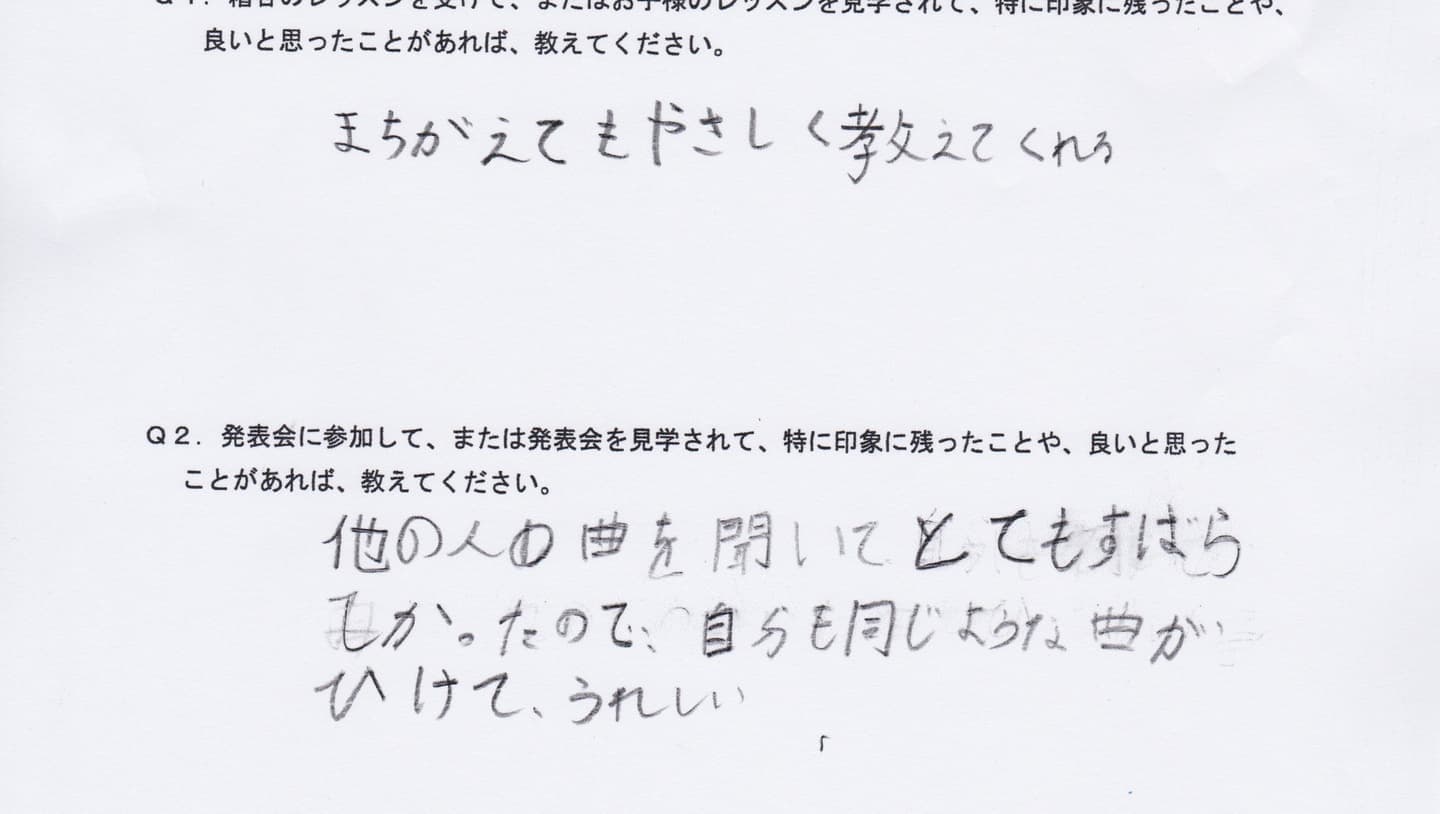 Q1. 稽古のレッスンを受けて、またはお子様のレッスンを見学されて、特に印象に残ったことや、
良いと思ったことがあれば、教えてください。
まちがえてもやさしく教えてくれる
Q2. 発表会に参加して、または発表会を見学されて、特に印象に残ったことや、良いと思った
ことがあれば、教えてください。
他の人の曲を聞いてとてもすばら
しかったので、自分も同じような曲が
ひけて、うれしい